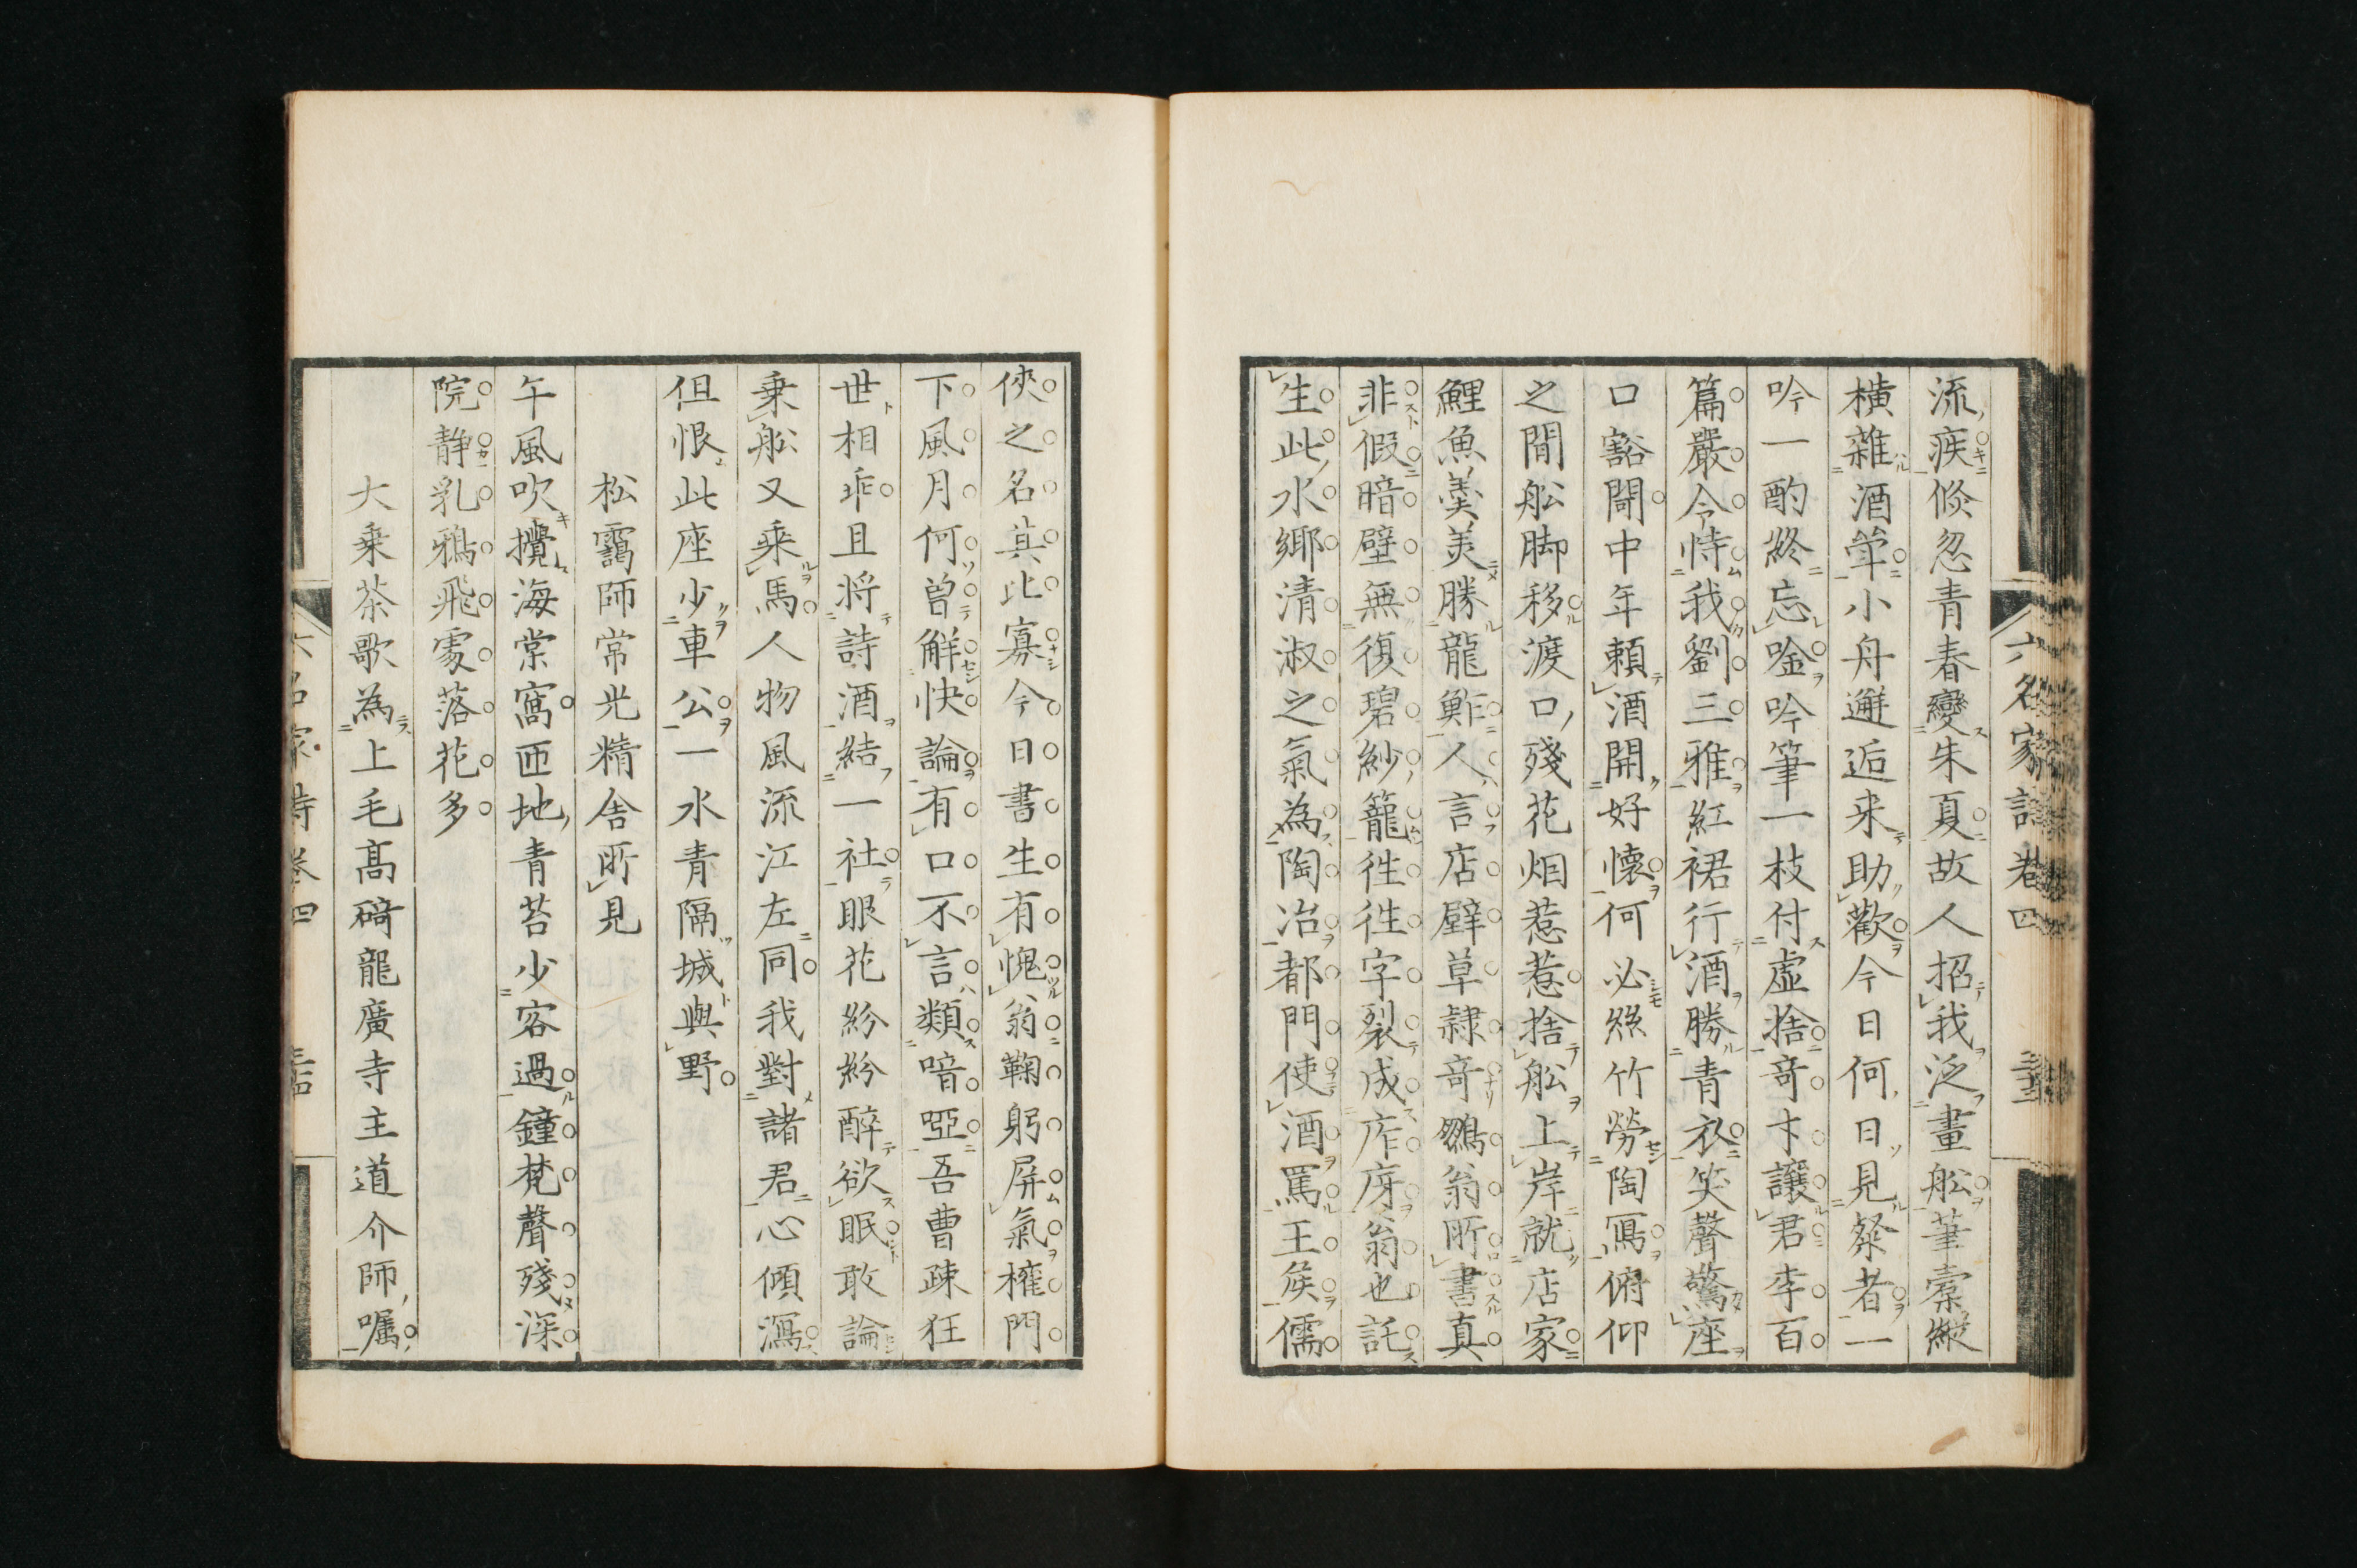 流疾倐忽青春變朱夏故人招我泛畫舩筆槖縱
橫雜酒䇭小舟邂逅来助歡今日何日見粲者一
吟一酌終忘唫吟筆一枝付虛捨竒才讓君李百
篇嚴令恃我劉三雅紅裙行酒勝青衣笑聲驚座
口豁閙中年賴酒開好懷何必絲竹勞陶寫俯仰
之間舩脚移渡口殘花烟惹惹捨舩上岸就店家
鯉魚羮美勝龍鮓人言店壁草隷竒鵬翁所書真
非假暗壁無復碧紗籠徃徃字裂成庎庌翁也託
生此水鄉清淑之氣為陶冶都門使酒罵王矦儒
六名家詩卷四
俠之名真比寡今日書生有愧翁鞠躬屏氣權門
下風月何曽解快論有口不言類喑啞吾曹疎狂
世相乖且將詩酒結一社眼花紛紛醉欲眠敢論
乗舩又乘馬人物風流江左同我對諸君心傾瀉
但恨此座少車公一水青隔城與野
松靄師常光精舍所見
午風吹攪海棠窩匝地青苔少客過鐘梵聲殘深
院靜乳鴉飛處落花多
大乗茶歌為上毛髙碕龍廣寺主道介師嘱
六名家詩卷四